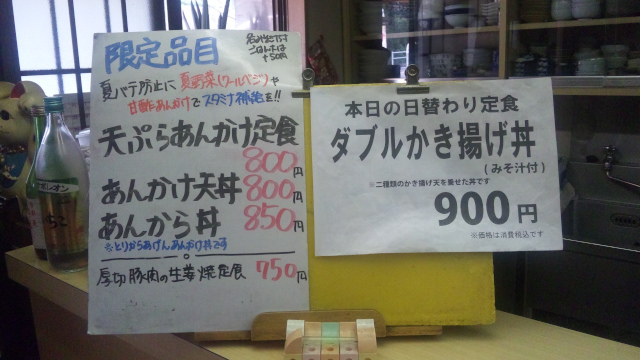 限定品目
ごはんは
+50円
夏バテ防止に夏野菜(クールベジ)や
甘酢あんかけでスタミナ補給を!!
天ぷらあんかけ定食
800円
あんかけ天丼 800円
あんから丼 850円
※とりからあげ、あんかけ丼です
厚切豚肉の生姜焼定食 750円
本日の日替わり定食
ダブルかき揚げ丼
(みそ汁付)
※二種類のかき揚げ天を乗せた丼です
900円
※価格は消費税込です